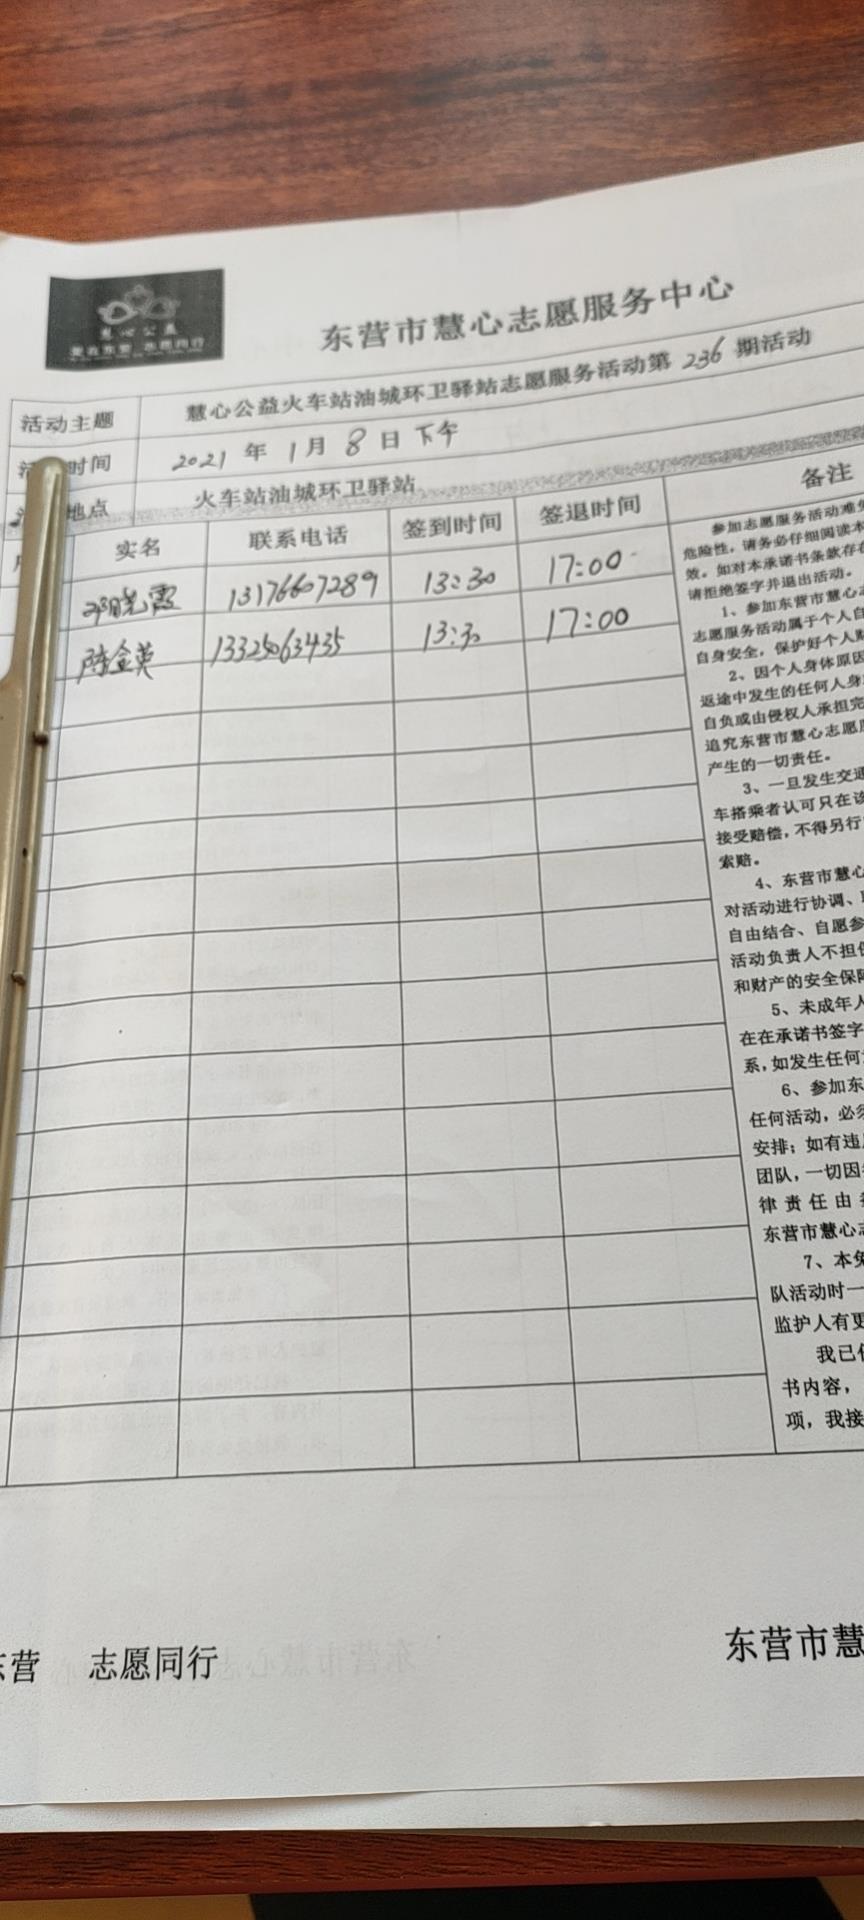 慧心公益
爱在东营 志愿同行
东营市慧心志愿服务中心
活动主题 慧心公益火车站油城环卫驿站志愿服务活动第 236 期活动
时间 2021 年 1 月 8 日 下午
地点 火车站油城环卫驿站
实名 联系电话 签到时间 签退时间 备注
邓晓霞 13176607289 13:30 17:00
陈金英 13325063435 13:30 17:00
参加志愿服务活动难免
危险性，请务必仔细阅读本
效。如对本承诺书条款存在
请拒绝签字并退出活动。
1、参加东营市慧心志
志愿服务活动属于个人自
自身安全，保护好个人财
2、因个人身体原因
返途中发生的任何人身
自负或由侵权人承担完
追究东营市慧心志愿
产生的一切责任。
3、一旦发生交通
车搭乘者认可只在该
接受赔偿，不得另行
索赔。
4、东营市慧心
对活动进行协调、
自由结合、自愿参
活动负责人不担
和财产的安全保
5、未成年人
在在承诺书签字
系，如发生任何
6、参加东
任何活动，必须
安排；如有违
团队，一切因
律责任由
东营市慧心
7、本免
队活动时一
监护人有更
我已
书内容，
项，我接
东营 志愿同行 东营市慧